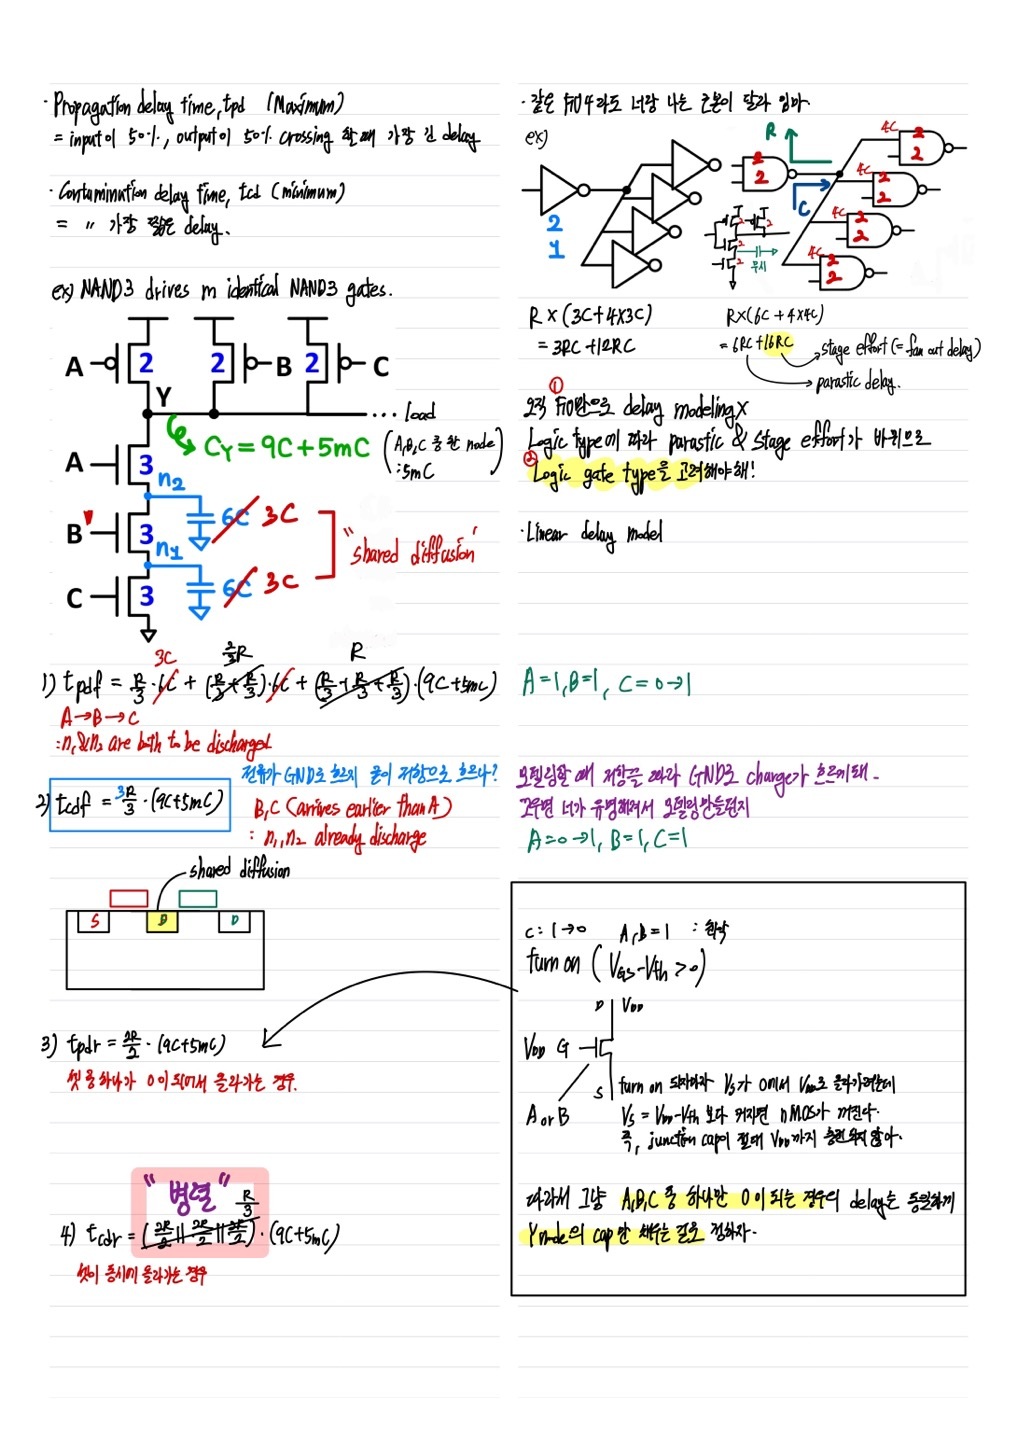 · Propagation delay time, tpd (Maximum)
= input이 50%, output이 50% crossing 할 때 가장 긴 delay
· Contamination delay time, tcd (minimum)
= 〃 가장 짧은 delay.
ex) NAND3 drives m identical NAND3 gates.
A 2 2 B 2 C
Y
... load
CY = 9C + 5mC
(A,B,C 중 한 node)
: 5mC
A 3
n2
6C 3C
B 3
n1
"shared diffusion"
6C 3C
C 3
3C 2/3R R
1) tpdf = R/3 · 6C + (R/3 + R/3) · 6C + (R/3 + R/3 + R/3) · (9C+5mC)
A→B→C
: n1 & n2 are both to be discharged
전류가 GND로 흐르지 굳이 저항으로 흐르나?
2) tcdf = 3R/3 · (9C+5mC)
B, C (arrives earlier than A)
: n1, n2 already discharge
shared diffusion
S D D
3) tpdr = 2R/2 · (9C+5mC)
셋 중 하나가 0이 되어서 올라가는 경우.
"병렬"
R/3
4) tcdr = (2R/2 || 2R/2 || 2R/2) · (9C+5mC)
셋이 동시에 올라가는 경우
· 같은 FO4라도 너랑 나는 근본이 달라 임마.
ex)
2
1
R
C
2
2
무시
2
2
2
2
4C 2
2
4C 2
2
4C 2
2
4C 2
2
R × (3C + 4×3C)
= 3RC + 12RC
R×(6C + 4×4C)
= 6RC + 16RC
stage effort (= fan out delay)
parastic delay.
①
오직 FO만으로 delay modeling X
Logic type에 따라 parastic & stage effort가 바뀌므로
②
Logic gate type을 고려해야해!
· Linear delay model
A=1, B=1, C=0→1
모델링할 때 저항을 따라 GND로 charge가 흐르게돼.
A=0→1, B=1, C=1
C: 1→0 A,B=1 : 최악
turn on (VGS-Vth >0)
D VDD
VDD G
S
A or B
turn on 되자마자 Vs가 0에서 VDD로 올라가려는데
Vs = VDD-Vth 보다 커지면 nMOS가 꺼진다.
즉, junction cap이 절대 VDD까지 충전되지 않아.
따라서 그냥 A,B,C 중 하나만 0이 되는 경우의 delay는 동일하게
Y node의 cap만 채우는 걸로 정하자.